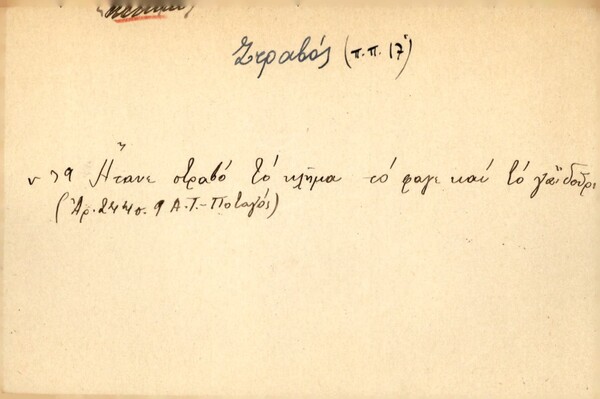 Στραβός (π.π. 17)
79 Ἤτανε στραβό τό κλῆμα τό φαγε καί τό γαϊδοῦρι
(Ἀρ. 244 σ. 9 Α.Τ.-Ποταγός)